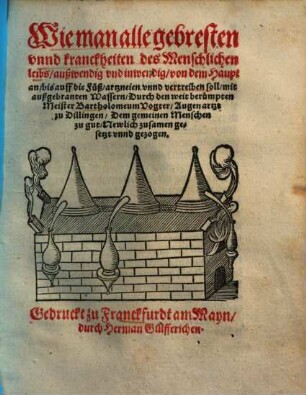 Wie man alle gebresten
vnnd kranckheiten des Menschlichen
leibs / außwendig vnd inwendig / von dem Haupt
an / bis auff die Füß / artzneien vnnd vertreiben soll / mit
außgebranten Wassern / Durch den weit berümpten
Meister Bartholomeum Vogter / Augen artzt
zu Dillingen / Dem gemeinen Menschen
zu gut / Newlich zusamen ge=
setzt vnnd gezogen.
Gedruckt zu Franckfurdt am Mayn /
durch Herman Gülfferichen.